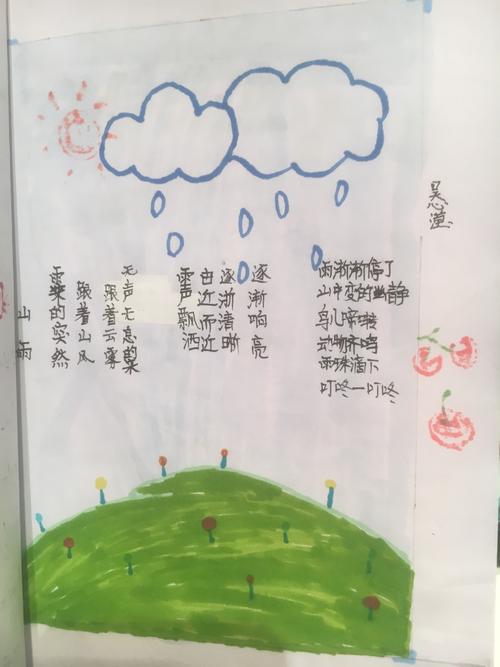 山雨
雨来的突然
跟着山风
跟着云雾
无声无息的来
雨声飘洒
由近而近
逐渐清晰
逐渐响亮
雨渐渐停了
山中变的幽静
鸟儿啼啭
动物齐鸣
雨珠滴下
叮咚一叮咚
吴